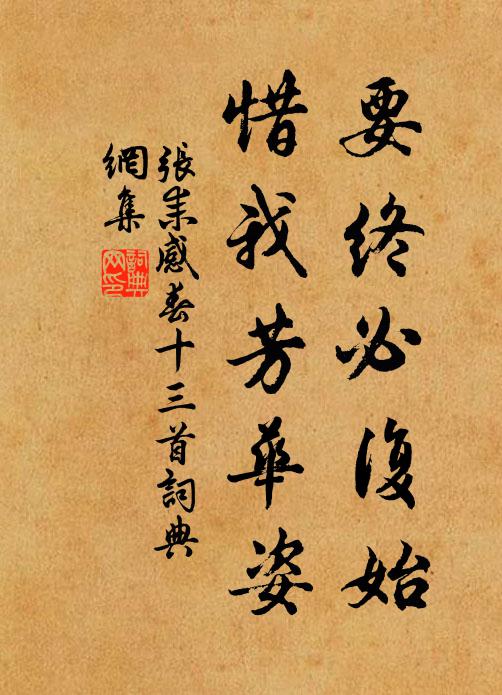 要終必復始
惜我芳華姿
張耒感春十三首詞典
網集
詞典网印